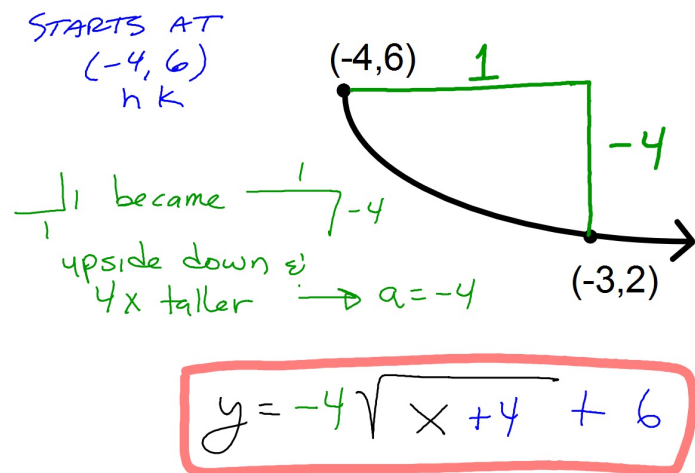 STARTS AT
(-4, 6)
h k
(-4,6)
1
-4
1
1
became
1
-4
upside down &
4x taller → a = -4
(-3,2)
y = -4√(x+4) + 6